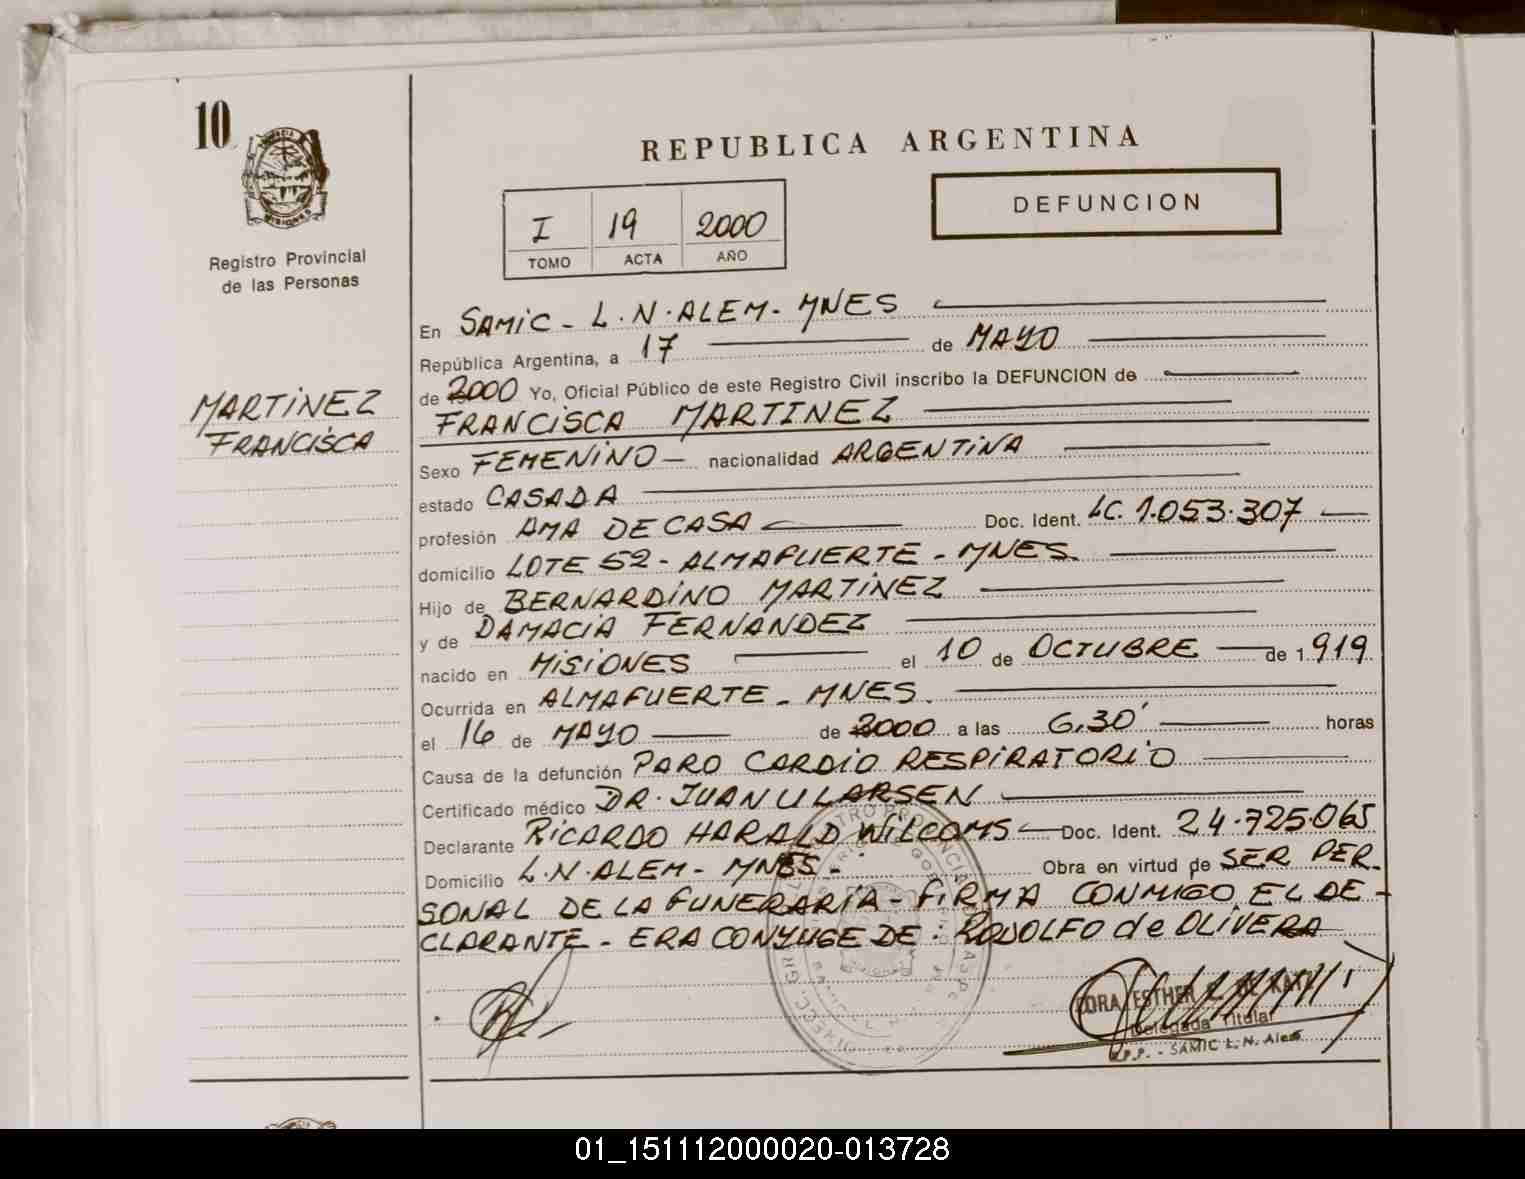 10
REPUBLICA ARGENTINA
DEFUNCION
I 19 2000
TOMO ACTA AÑO
Registro Provincial
de las Personas
MARTINEZ
FRANCISCA
En SAMIC - L.N.ALEM - MNES
República Argentina, a 17 de MAYO
de 2000 Yo, Oficial Público de este Registro Civil inscribo la DEFUNCION de
FRANCISCA MARTINEZ
Sexo FEMENINO - nacionalidad ARGENTINA
estado CASADA
profesión AMA DE CASA Doc. Ident. LC. 1.053.307
domicilio LOTE 52 - ALMAFUERTE - MNES.
Hijo de BERNARDINO MARTINEZ
y de DAMACIA FERNANDEZ
nacido en MISIONES el 10 de OCTUBRE de 1.919
Ocurrida en ALMAFUERTE - MNES.
el 16 de MAYO de 2000 a las 6,30' horas
Causa de la defunción PARO CARDIO RESPIRATORIO
Certificado médico DR. JUAN U LARSEN
Declarante RICARDO HARALD WILCOMS Doc. Ident. 24.725.065
Domicilio L.N.ALEM - MNES - Obra en virtud de SER PER-
SONAL DE LA FUNERARIA - FIRMA CONMIGO EL DE-
CLARANTE - ERA CONYUGE DE: RODOLFO de OLIVERA
ESTHER
Delegada Titular
R.P.P. - SAMIC L.N. Alem
01_151112000020-013728